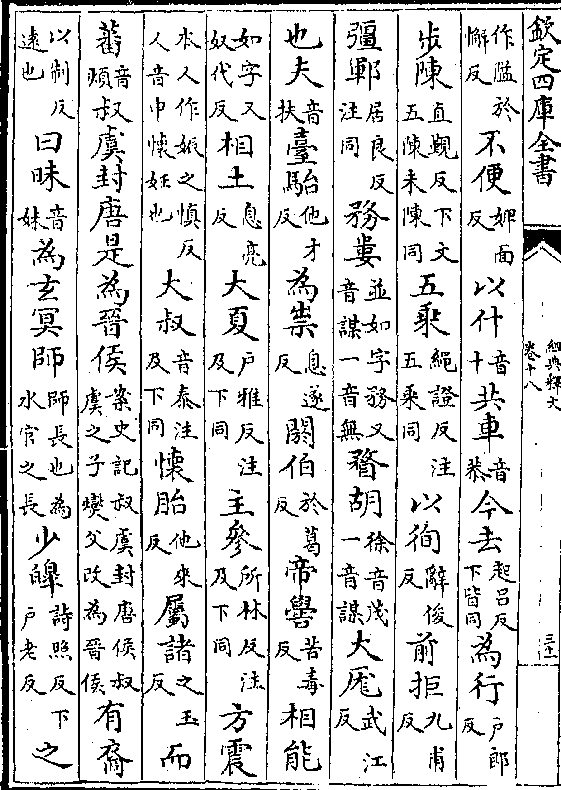 欽定四庫全書
經典釋文
卷十八
三十一
作隘於懈反不便婢面反以什音十共車音恭今去起呂反下皆同為行戶郎反
步陳直覲反下文五陳未陳同五乗繩證反注五乗同以徇辭俊反前拒九甫反
彊鄆居良反注同務婁並如字務又音謀一音無瞀胡徐音茂一音謀大厖武江反
也夫音扶臺駘他才反為祟息遂反閼伯於葛反帝嚳苦毒反相能
如字又奴代反相土息亮反大夏戶雅反注及下同主參所林反注及下同方震
本人作娠之慎反人音申懷姙也大叔音泰注及下同懷胎他來反屬諸之玉反而
蕃音煩叔虞封唐是為晉侯案史記叔虞封唐侯叔虞之子燮父改為晉侯有裔
以制反逺也曰昧音妹為玄冥師師長也為水官之長少皥詩照反下戶老反之